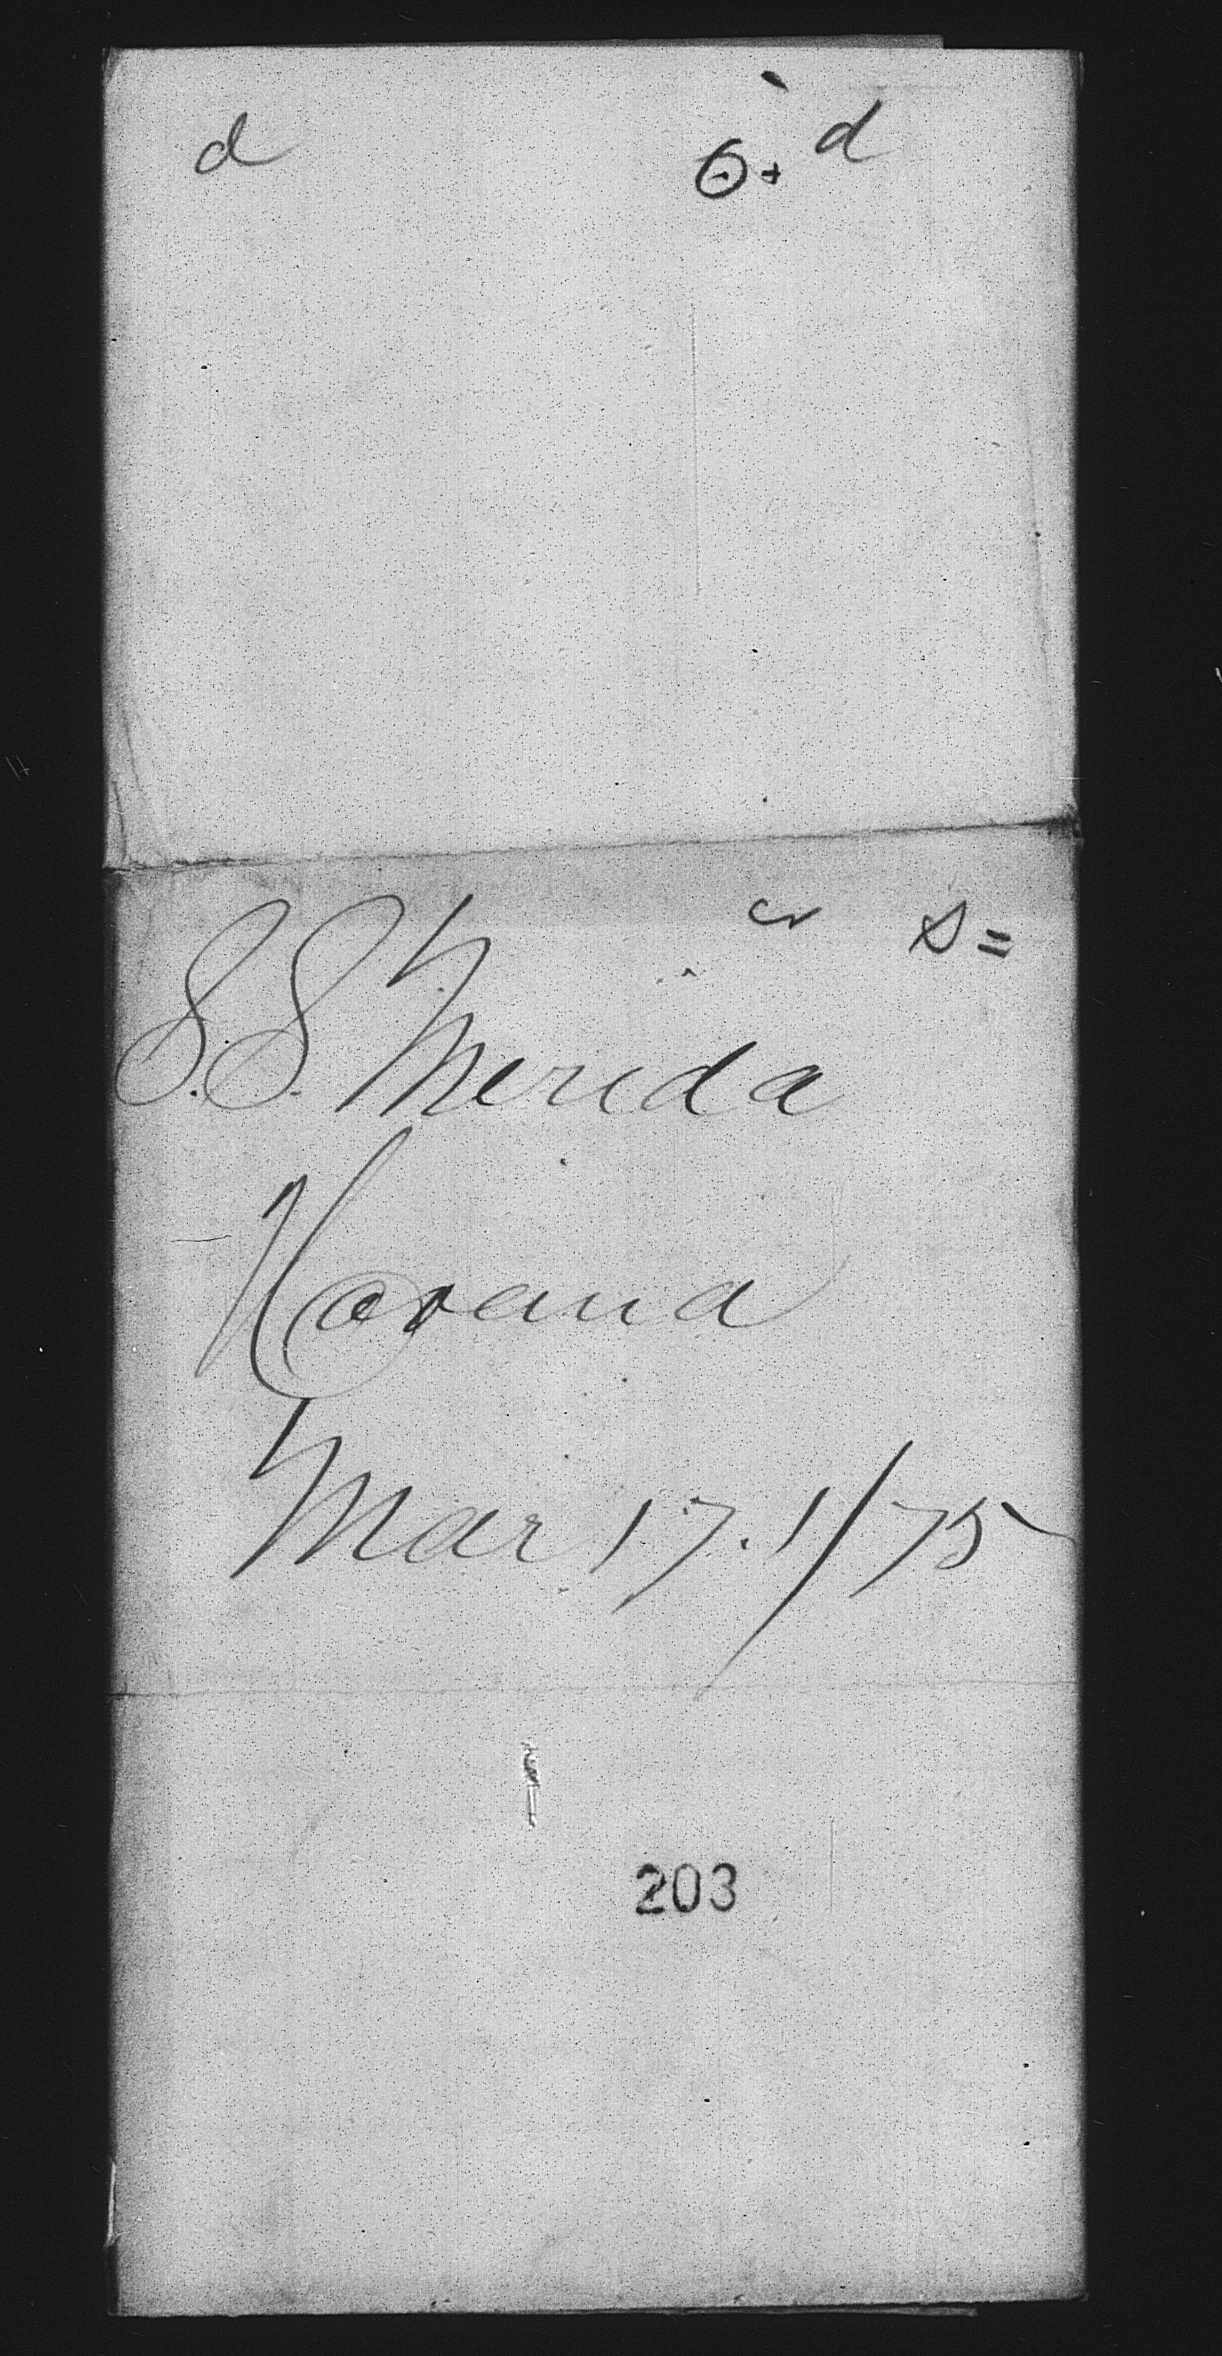 d d
S.S. Merida
Havana
Mar 17. 1/75
203